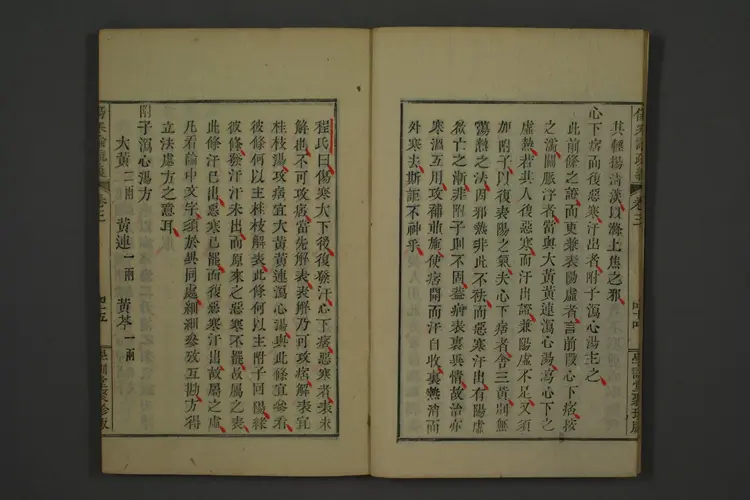 其輕揚清淡以滌上焦之邪
心下痞而復惡寒汗出者附子瀉心湯主之
此前條之證而更兼表陽虛者言前段心下痞按
之濡關脈浮者當與大黃黃連瀉心湯瀉心下之
虛熱若其人復惡寒而汗出證兼陽虛不足又須
加附子以復表陽之氣夫心下痞者舍三黃則無
瀉熱之法因邪熱非此不祛而惡寒汗出有陽虛
欲亡之漸非附子則不固蓋痞表裏異情故治亦
寒溫互用攻補並施使痞開而汗自收裏熱清而
外寒去斯誠不神乎
傷寒論疏義
卷三
四十四
學訓堂聚珍版
程氏曰傷寒大下後復發汗心下痞惡寒者表未
解也不可攻痞當先解表表解乃可攻痞解表宜
桂枝湯攻痞宜大黃黃連瀉心湯與此條宜參看
彼條何以主桂枝解表此條何以主附子回陽緣
彼條發汗汗未出而原來之惡寒不罷故屬之表
此條汗已出惡寒已罷而復惡寒汗出故屬之虛
凡看論中文字須於異同處細細參攷互勘方得
立法處方之意耳
附子瀉心湯方
大黃二兩 黃連一兩 黃芩一兩
傷寒論疏義
卷三
四十五
學訓堂聚珍版